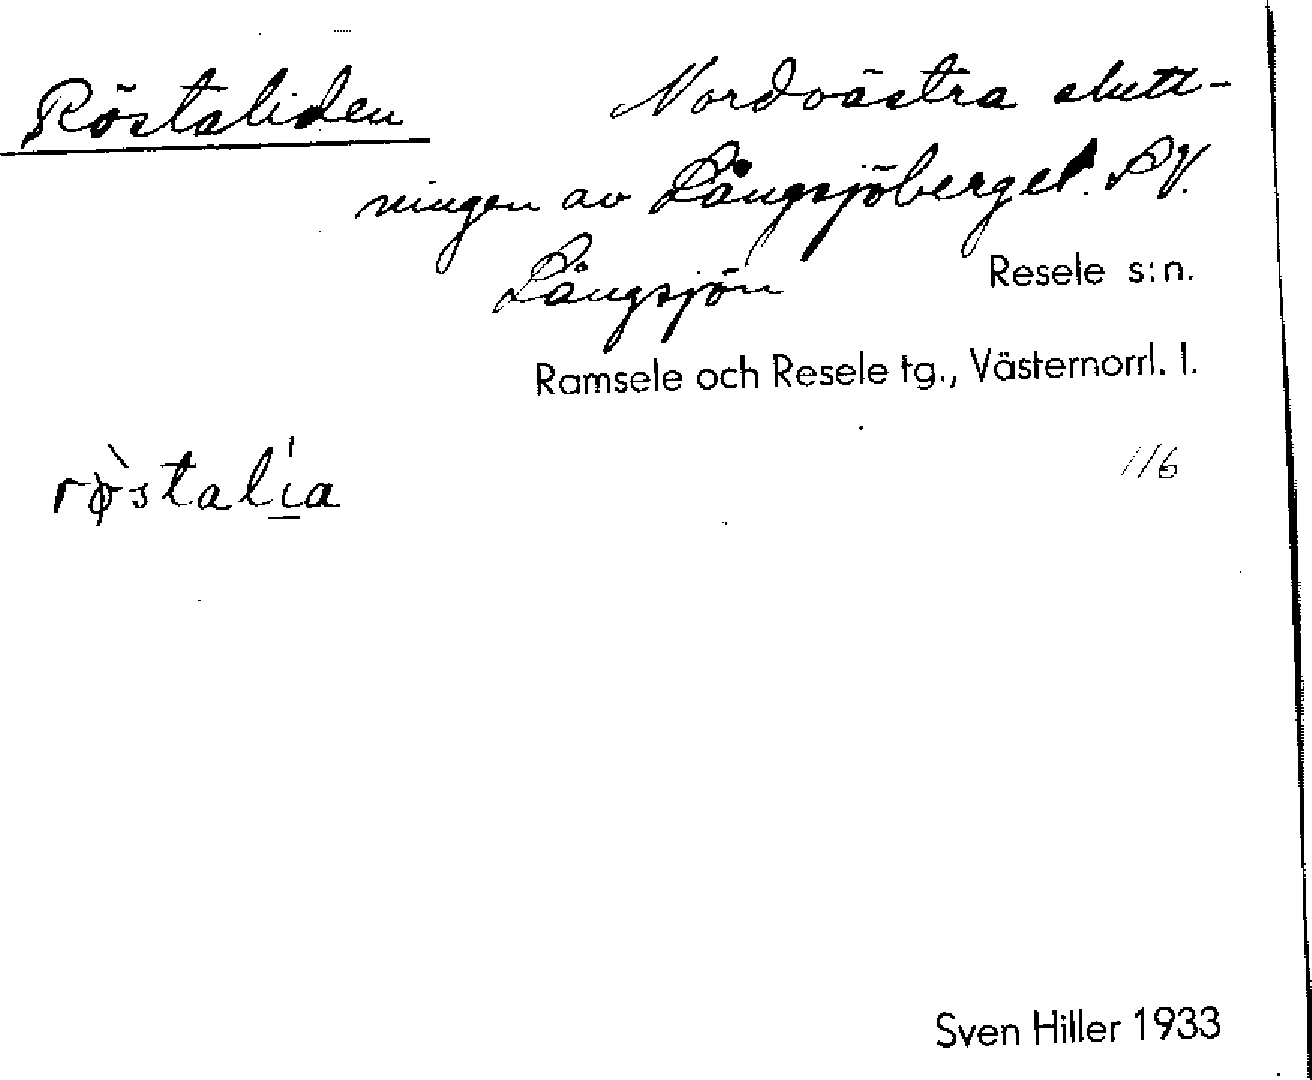 Röstaliden
Nordvästra slutt-
ningen av Långsjöberget. S.V.
Långsjön
Resele s:n.
Ramsele och Resele tg., Västernorrl. l.
116
rø̀stalı̲̍a
Sven Hiller 1933